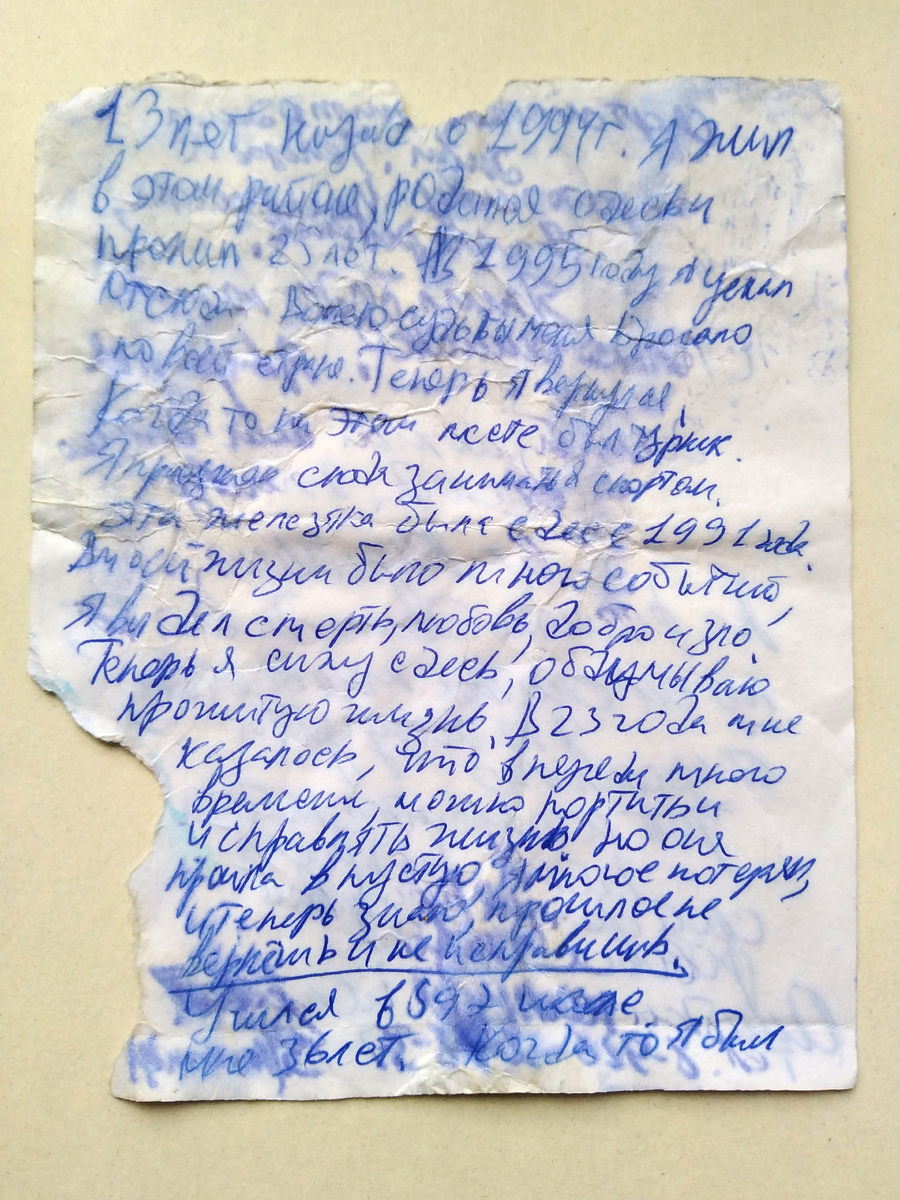 13 лет назад в 1994г. Я жил
в этом районе, родился сдесь и
прожил 25 лет. В 1995 году я уехал
отсюда. Волею судьбы меня бросало
по всей стране. Теперь я вернулся,
Когда то на этом месте был турник.
Я приходил сюда заниматься спортом.
Эта железяка была сдес с 1991 года.
В моей жизни было много событий,
Я видел смерть, любовь, добро и зло.
Теперь я сижу сдесь, обдумываю
прожитую жизнь. В 23 года мне
казалось, что впереди много
времени, можно портить и
исправлять жизнь но она
прошла в пустую. Я многое потерял,
и теперь знаю, прошлое не
вернёшь и не исправишь.
Учился в 597 школе
мне 36 лет. Когда то я был